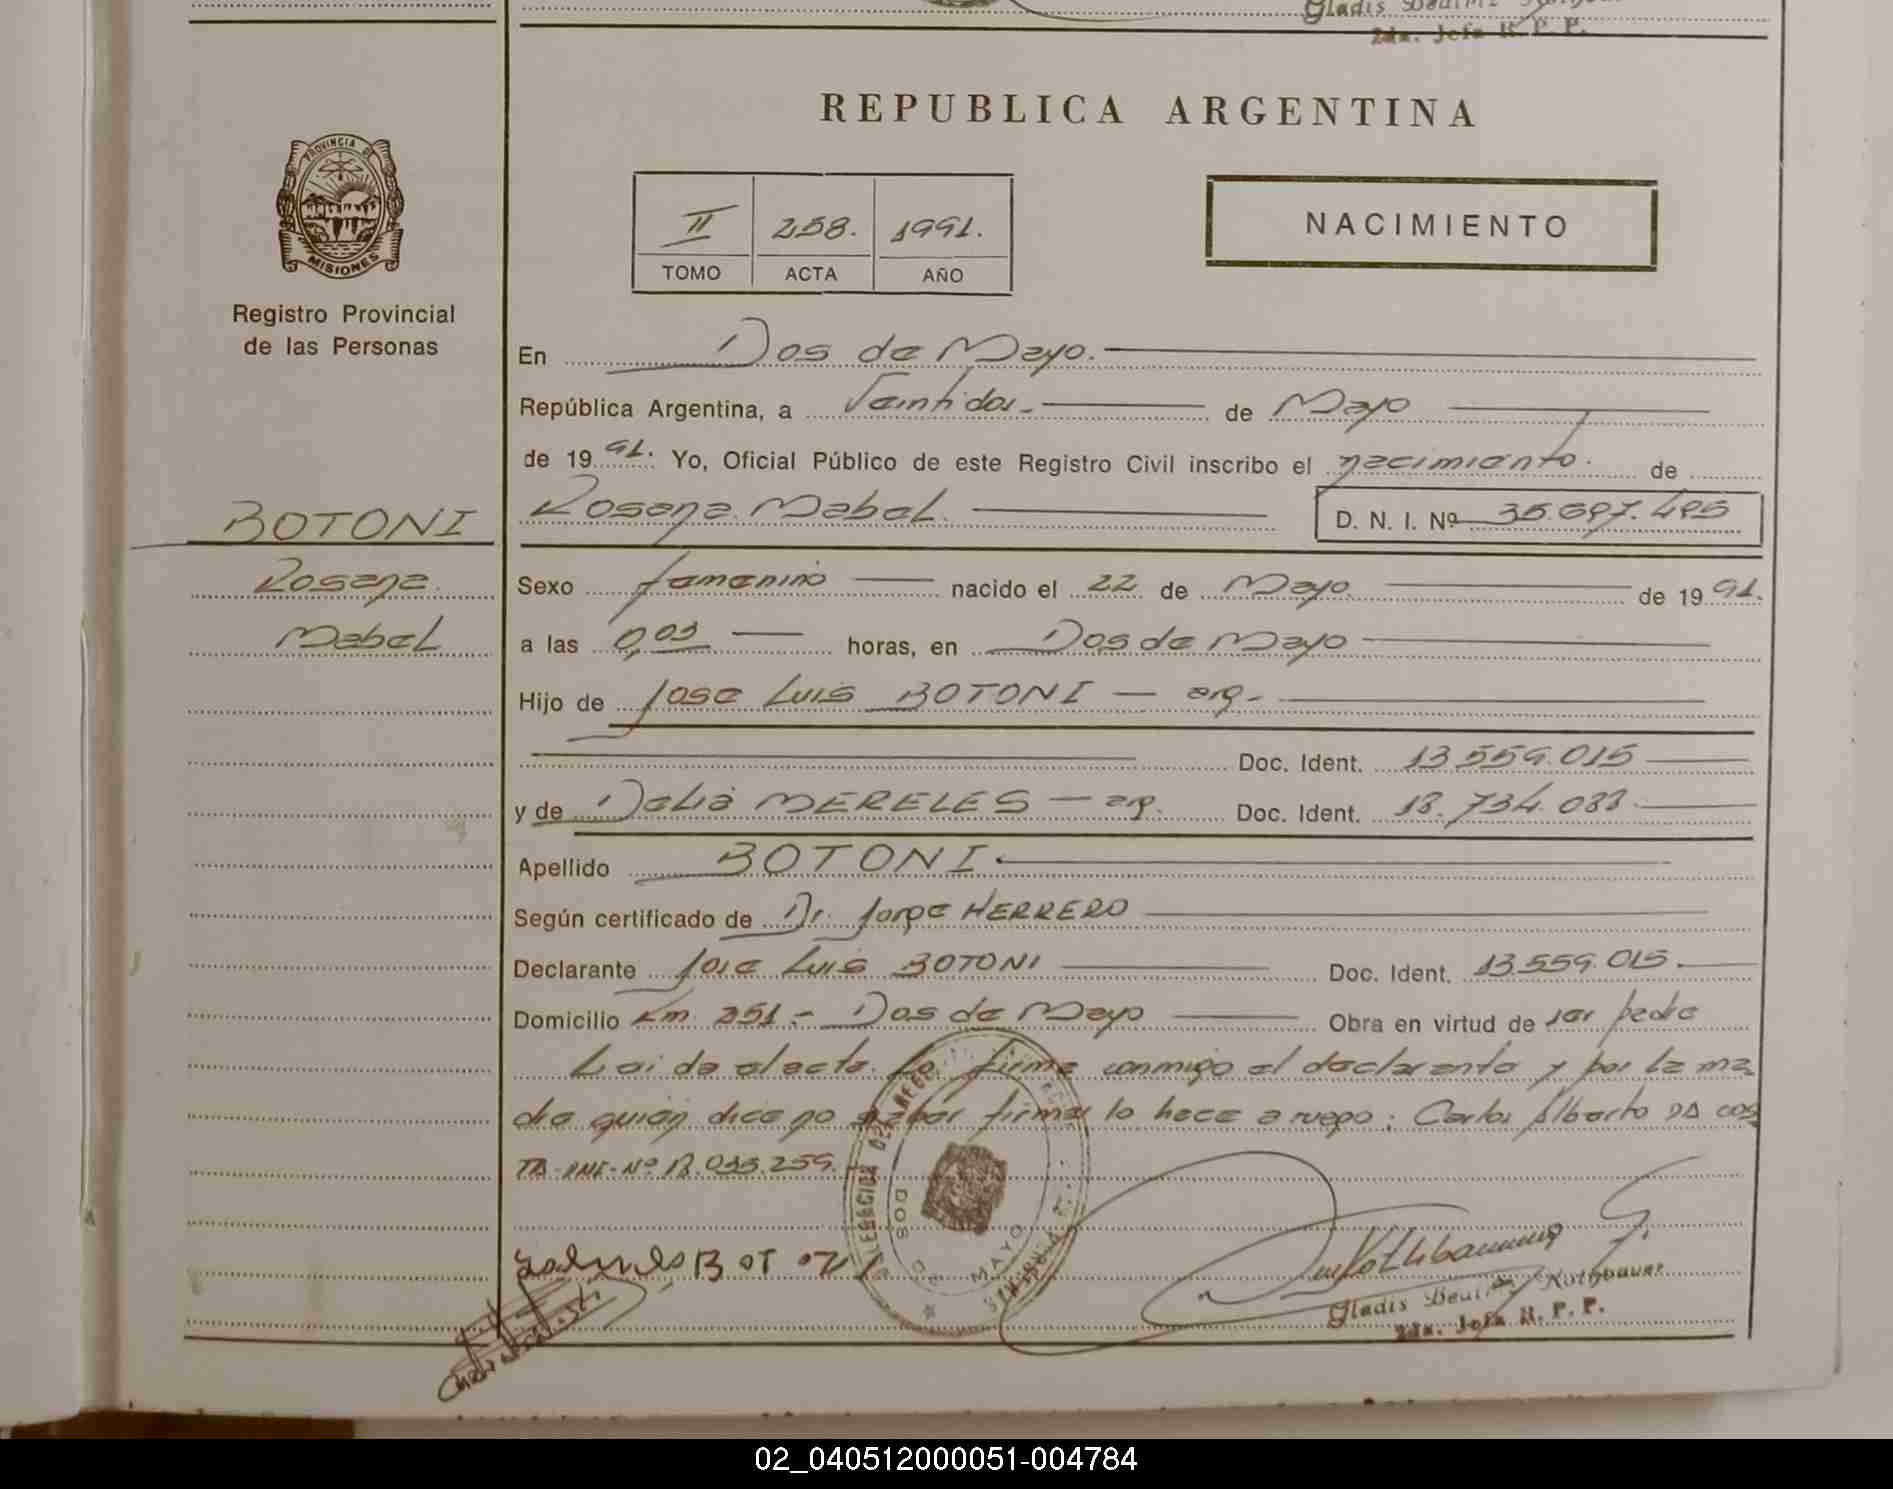 Gladis Beatriz
2da. Jefa R. P. P.
REPUBLICA ARGENTINA
PROVINCIA DE
MISIONES
II 258. 1991.
TOMO ACTA AÑO
NACIMIENTO
Registro Provincial
de las Personas
BOTONI
Rosana
Mabel
En Dos de Mayo.
República Argentina, a Veintidos de Mayo
de 1991. Yo, Oficial Público de este Registro Civil inscribo el nacimiento. de
Rosana Mabel. D. N. I. Nº 35.697.495
Sexo femenino nacido el 22 de Mayo de 1991.
a las 0,03 horas, en Dos de Mayo
Hijo de Jose Luis BOTONI — arg.
Doc. Ident. 13.559.015
y de Delia MERELES — arg. Doc. Ident. 18.734.088
Apellido BOTONI.
Según certificado de Dr. Jorge HERRERO
Declarante Jose Luis BOTONI Doc. Ident. 13.559.015.
Domicilio Km. 251 - Dos de Mayo Obra en virtud de ser padre
Lei da el acta. La firma conmigo el declarante y por la ma
dre quién dice no saber firmar lo hace a ruego: Carlos Alberto DA COS
TA-DNI-Nº
DELEGACION DEL REG.
DOS DE MAYO
BOTONI
Gladis Beatriz Rothbauer
2da. Jefa R. P. P.
02_040512000051-004784